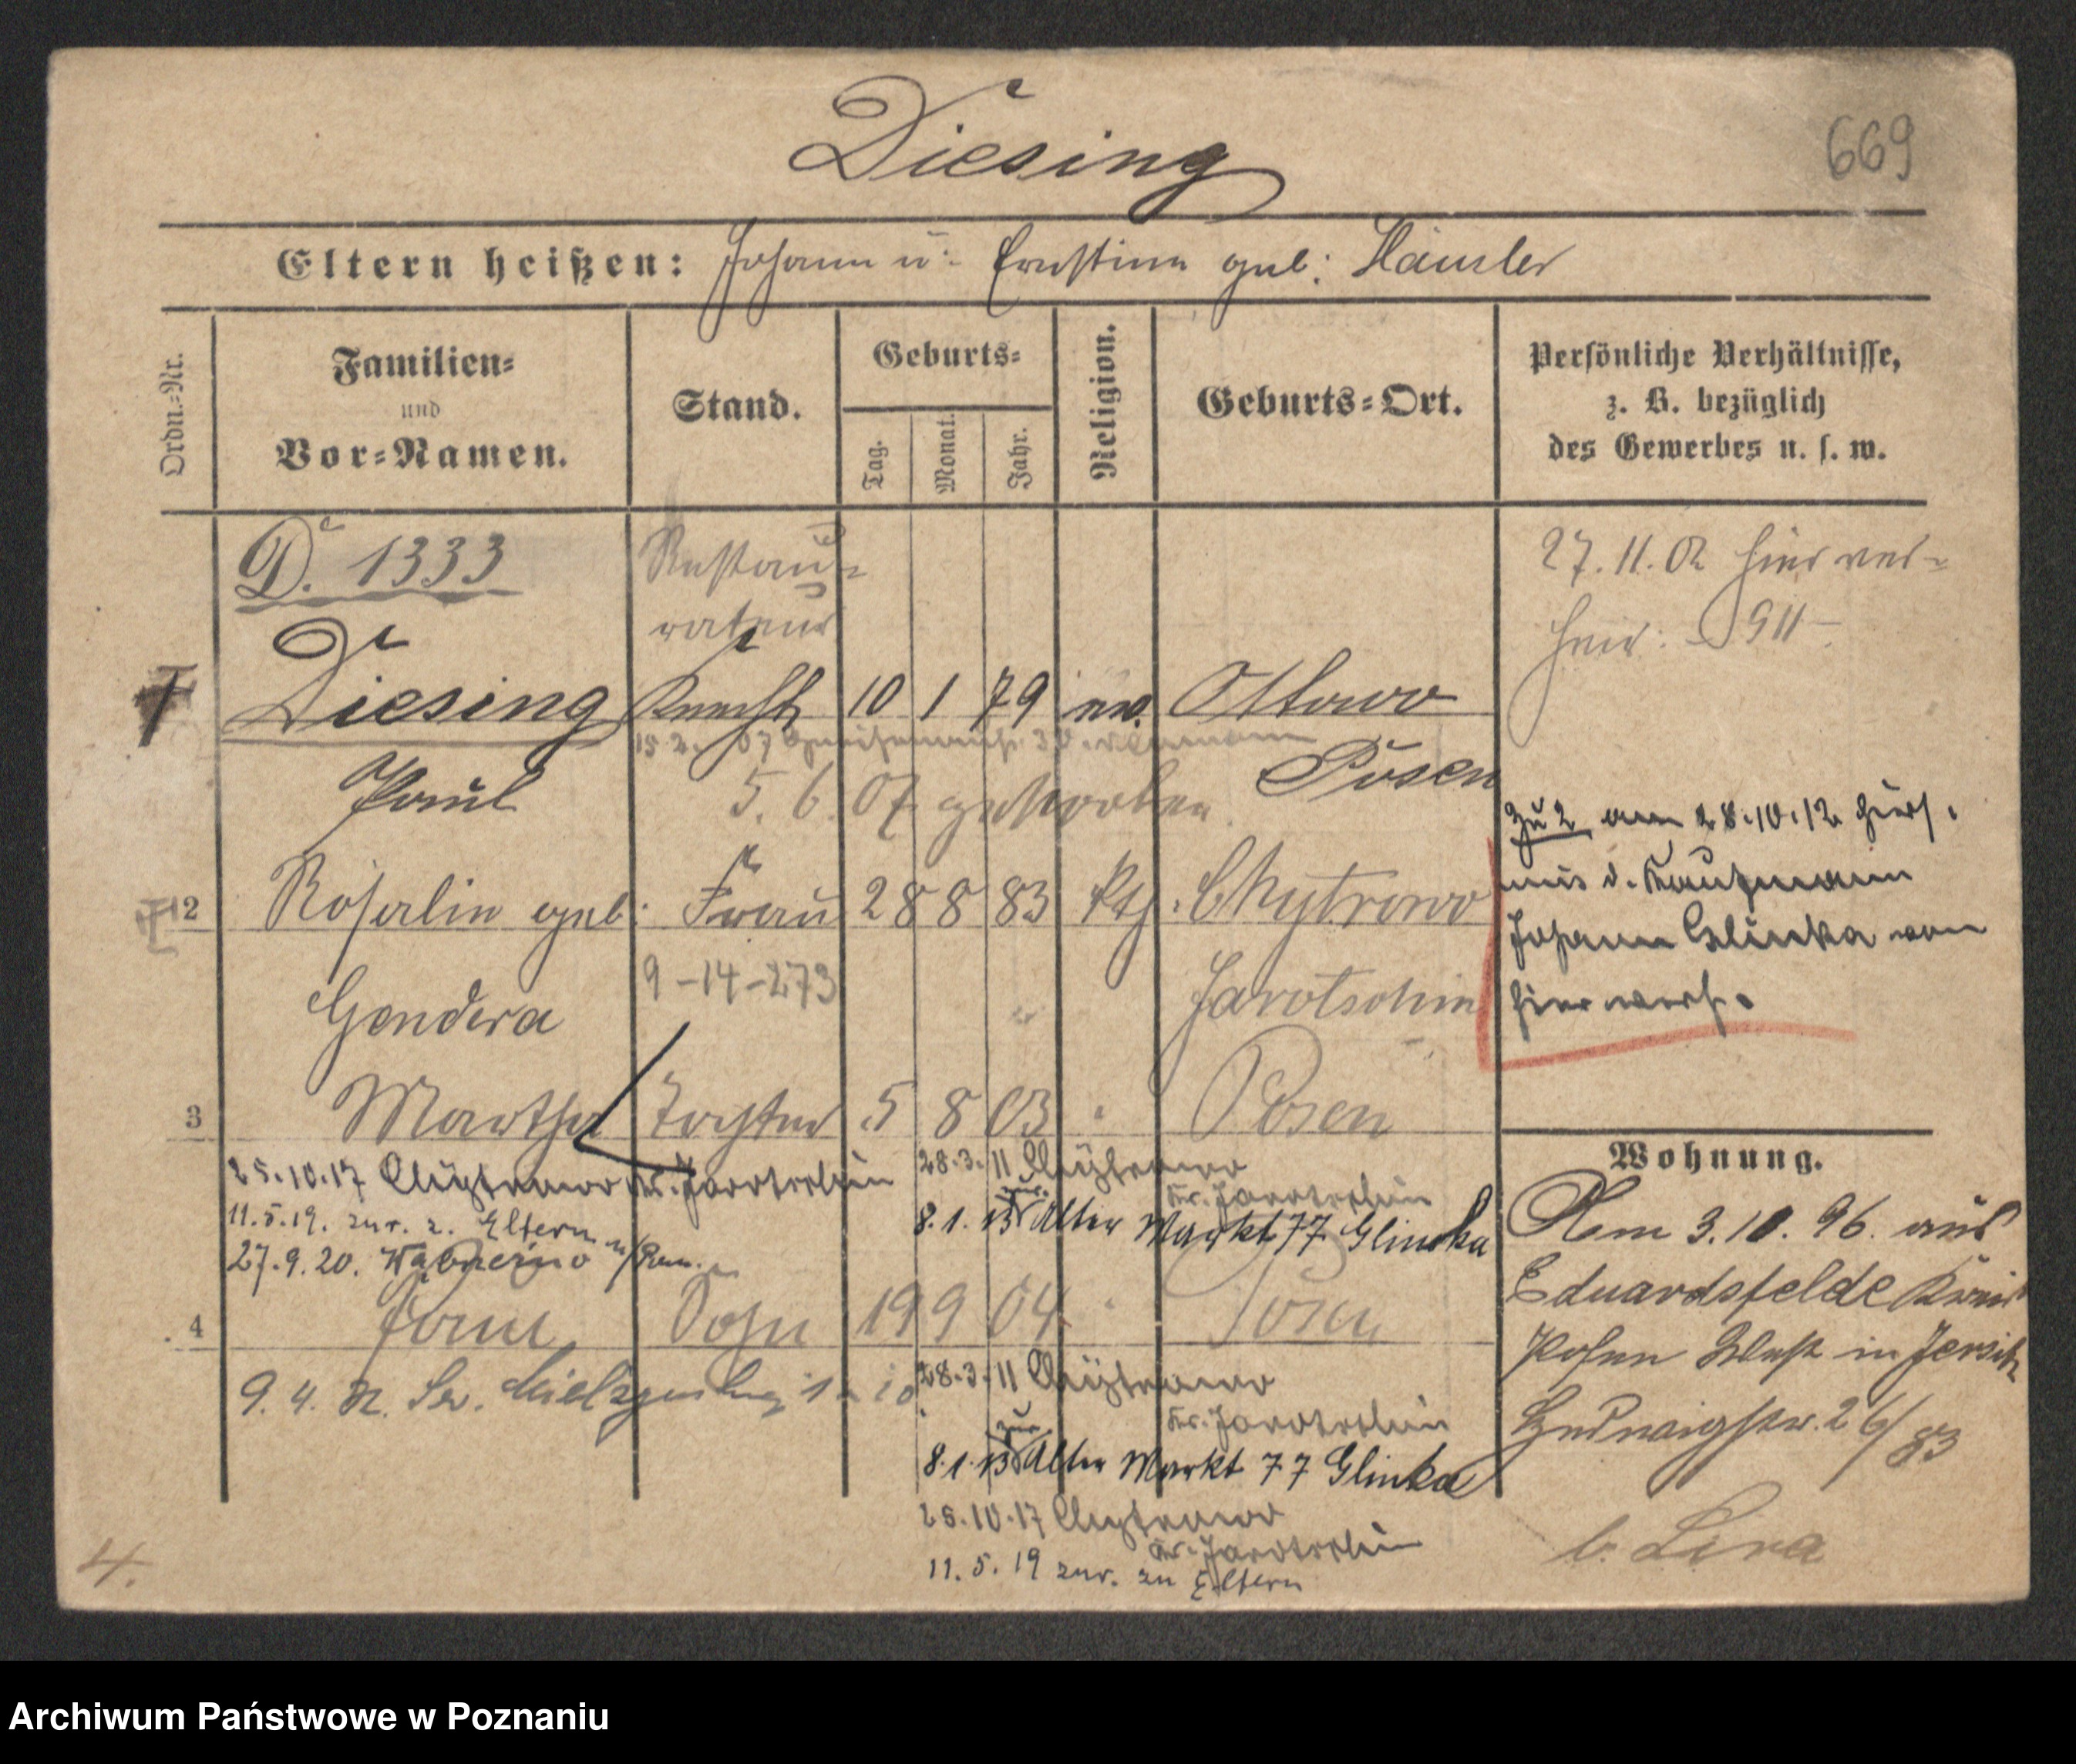 Diesing
669
Eltern heißen: Johann u. Ernstine geb: Häusler
Ordn.-Nr.
Familien-
und
Vor-Namen.
Stand.
Geburts-
Tag.
Monat.
Jahr.
Religion.
Geburts-Ort.
Persönliche Verhältnisse,
z. B. bezüglich
des Gewerbes u. s. w.
D. 1333
Restau-
rateur
27.11.02 hier ver-
heir: 911
1 Diesing Knecht 10 1 79 ev. Ottowo
Posen
Paul
5. 6. 07 gestorben.
Zu 2 am 28.10.12 hiers.
mit d. Kaufmann
Johann Glinka von
hier verh.
2 Rosalie geb: Frau 28 8 83 kth. Chytrowo
Gendera 9-14-273 Jarotschin
3 Martha Tochter 5 8 03 " Posen
25.10.17 Chytrowo Kr. Jarotschin
11.5.19. zur. z. Eltern
27.9.20.
28.3.11 Chytrowo
Kr. Jarotschin
zur.
8.1.13 Alter Markt 77 Glinka
4 Sohn 19 9 04 " Posen
9. 4.
28.3.11 Chytrowo
Kr. Jarotschin
zur.
8.1.13 Alter Markt 77 Glinka
25.10.17 Chytrowo
Kr. Jarotschin
11.5.19 zur. zu Eltern
Wohnung.
Am 3.10.96. aus
Eduardsfelde Kreis
Posen West in Jersitz
Hedwigstr. 26/83
b. Lira
4.
Archiwum Państwowe w Poznaniu